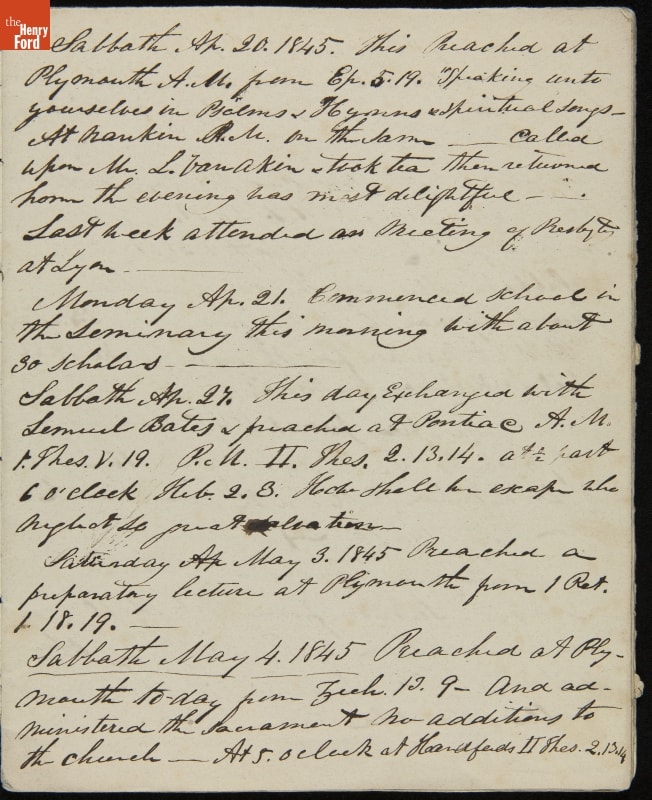 the
Henry
Ford
Sabbath Ap. 20. 1845. This Preached at
Plymouth A.M. from Ep. 5.19. "Speaking unto
yourselves in Psalms & Hymns & Spiritual Songs –
At Nankin P.M. on the same — Called
upon Mr. L. Vanakin & took tea then returned
home the evening was most delightful —
Last week attended a Meeting of Presbytery
at Lyon —
Monday Ap. 21. Commenced school in
the Seminary this morning with about
30 scholars —
Sabbath Ap. 27. This day Exchanged with
Lemuel Bates & preached at Pontiac A.M.
1. Thes. V. 19. P.M. II. Thes. 2.13.14. at ½ past
6 o'clock Heb. 2.3. How shall we escape who
neglect so great salvation —
Saturday Ap May 3. 1845 Preached a
preparatory lecture at Plymouth from 1 Pet.
1.18.19. —
Sabbath May 4. 1845 Preached at Ply-
mouth to-day from Zech. 13. 9 – And ad-
ministered the Sacrament no additions to
the church — At 5. o'clock at Handfords II Thes. 2.13.14